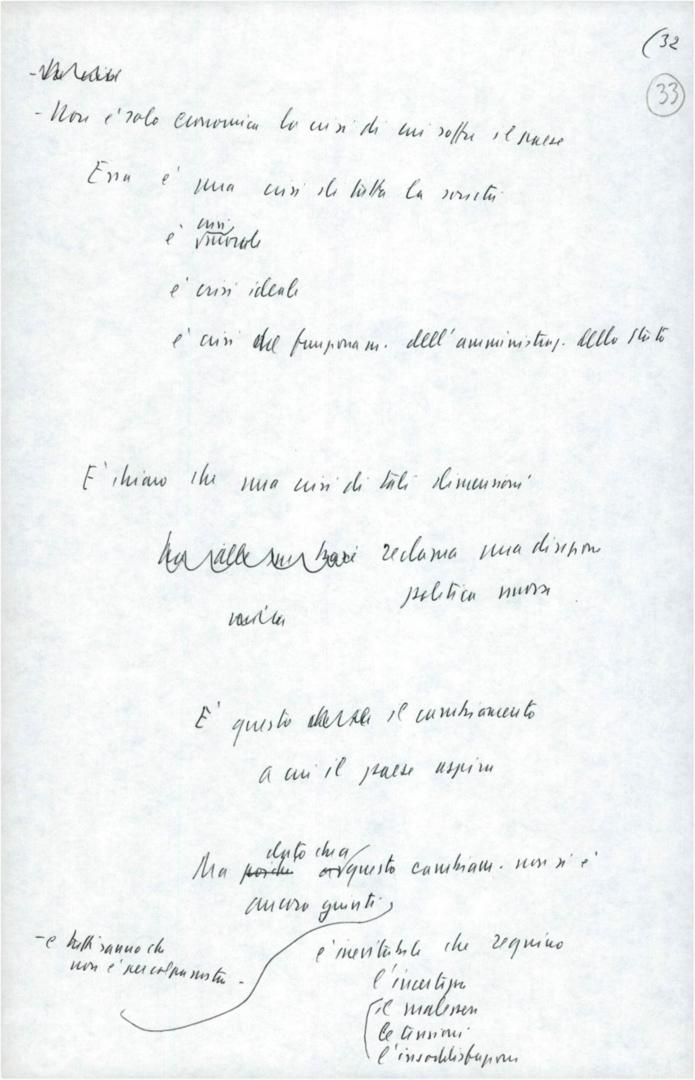 (32
33
- Non è solo economica la crisi di cui soffre il paese
Essa è una crisi di tutta la società
crisi
è morale
è crisi ideale
è crisi del funzionam. dell'amministraz. dello Stato
E' chiaro che una crisi di tali dimensioni
reclama una direzione
politica nuova
E' questo il cambiamento
a cui il paese aspira
dato che a
Ma poiché questo cambiam. non si è
ancora giunti,
- e tutti sanno che
non è per colpa nostra -
è inevitabile che regnino
l'incertezza
il malessere
le tensioni
l'insoddisfazione